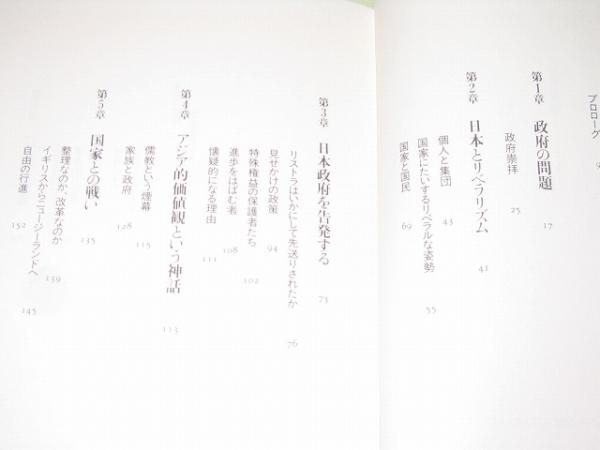 プロローグ
第1章 政府の問題 17
政府崇拝 25
第2章 日本とリベラリズム 41
個人と集団 43
国家にたいするリベラルな姿勢 55
国家と国民 69
第3章 日本政府を告発する 73
リストラはいかにして先送りされたか 76
見せかけの政策 94
特殊権益の保護者たち 102
進歩をはばむ者 108
懐疑的になる理由 111
第4章 アジア的価値観という神話 113
儒教という煙幕 115
家族と政府 128
第5章 国家との戦い 135
整理なのか、改革なのか 139
イギリスからニュージーランドへ 145
自由の行進 152